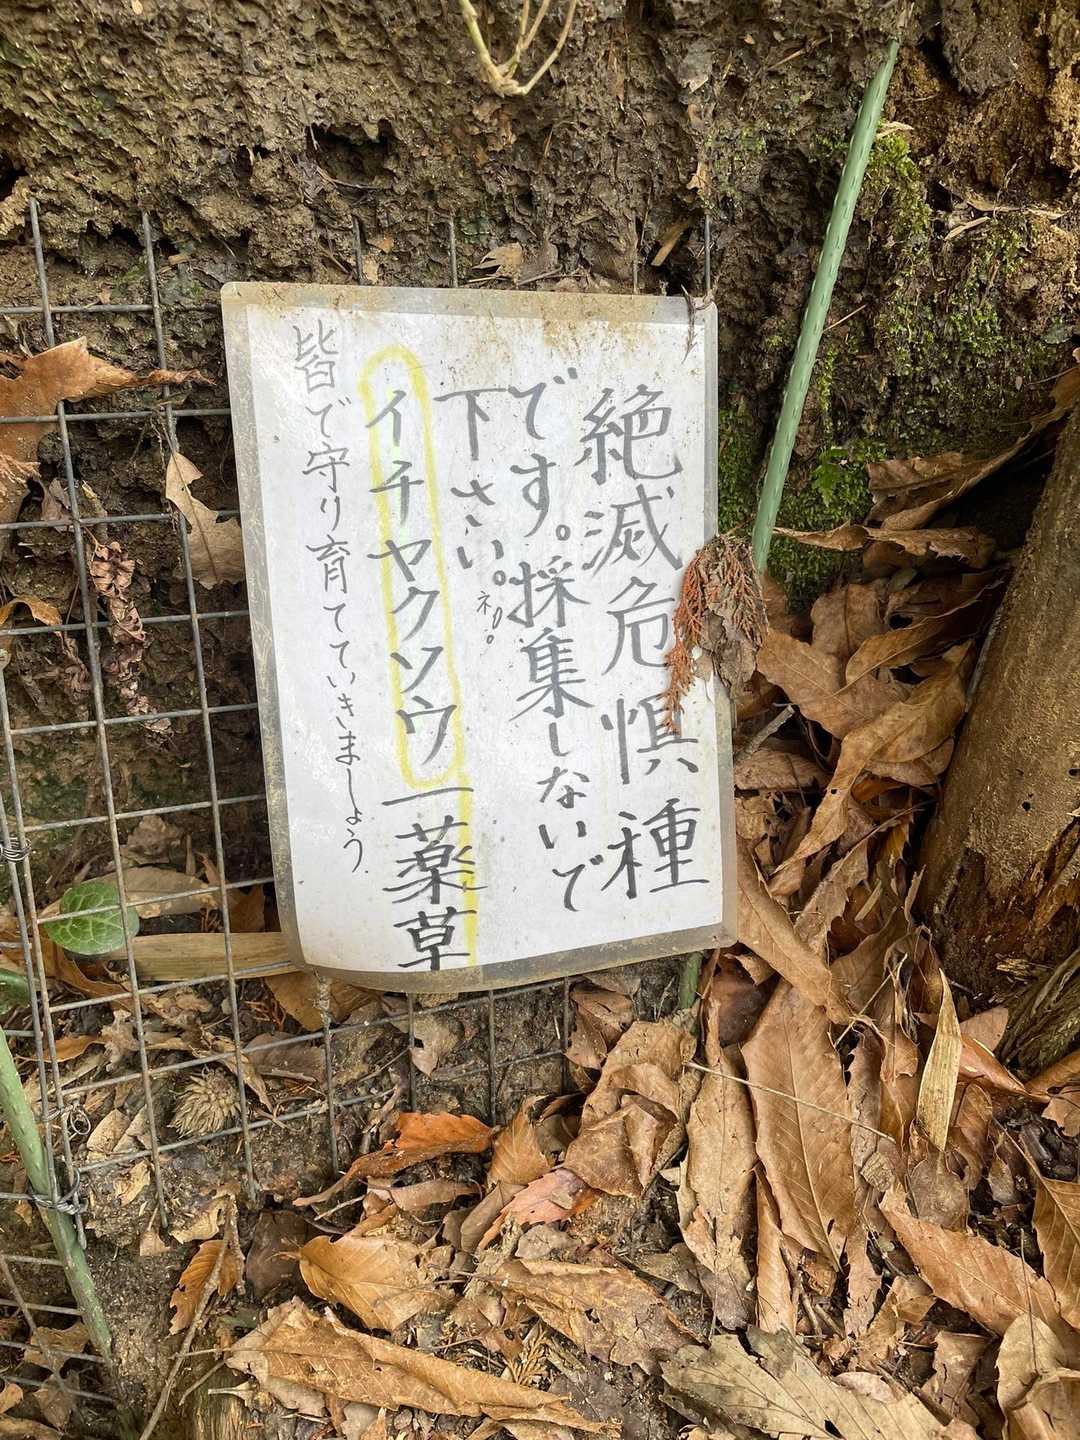 絶滅危惧種
です。採集しないで
下さい。ネ!。
イチヤクソウ一薬草
皆で守り育てていきましょう